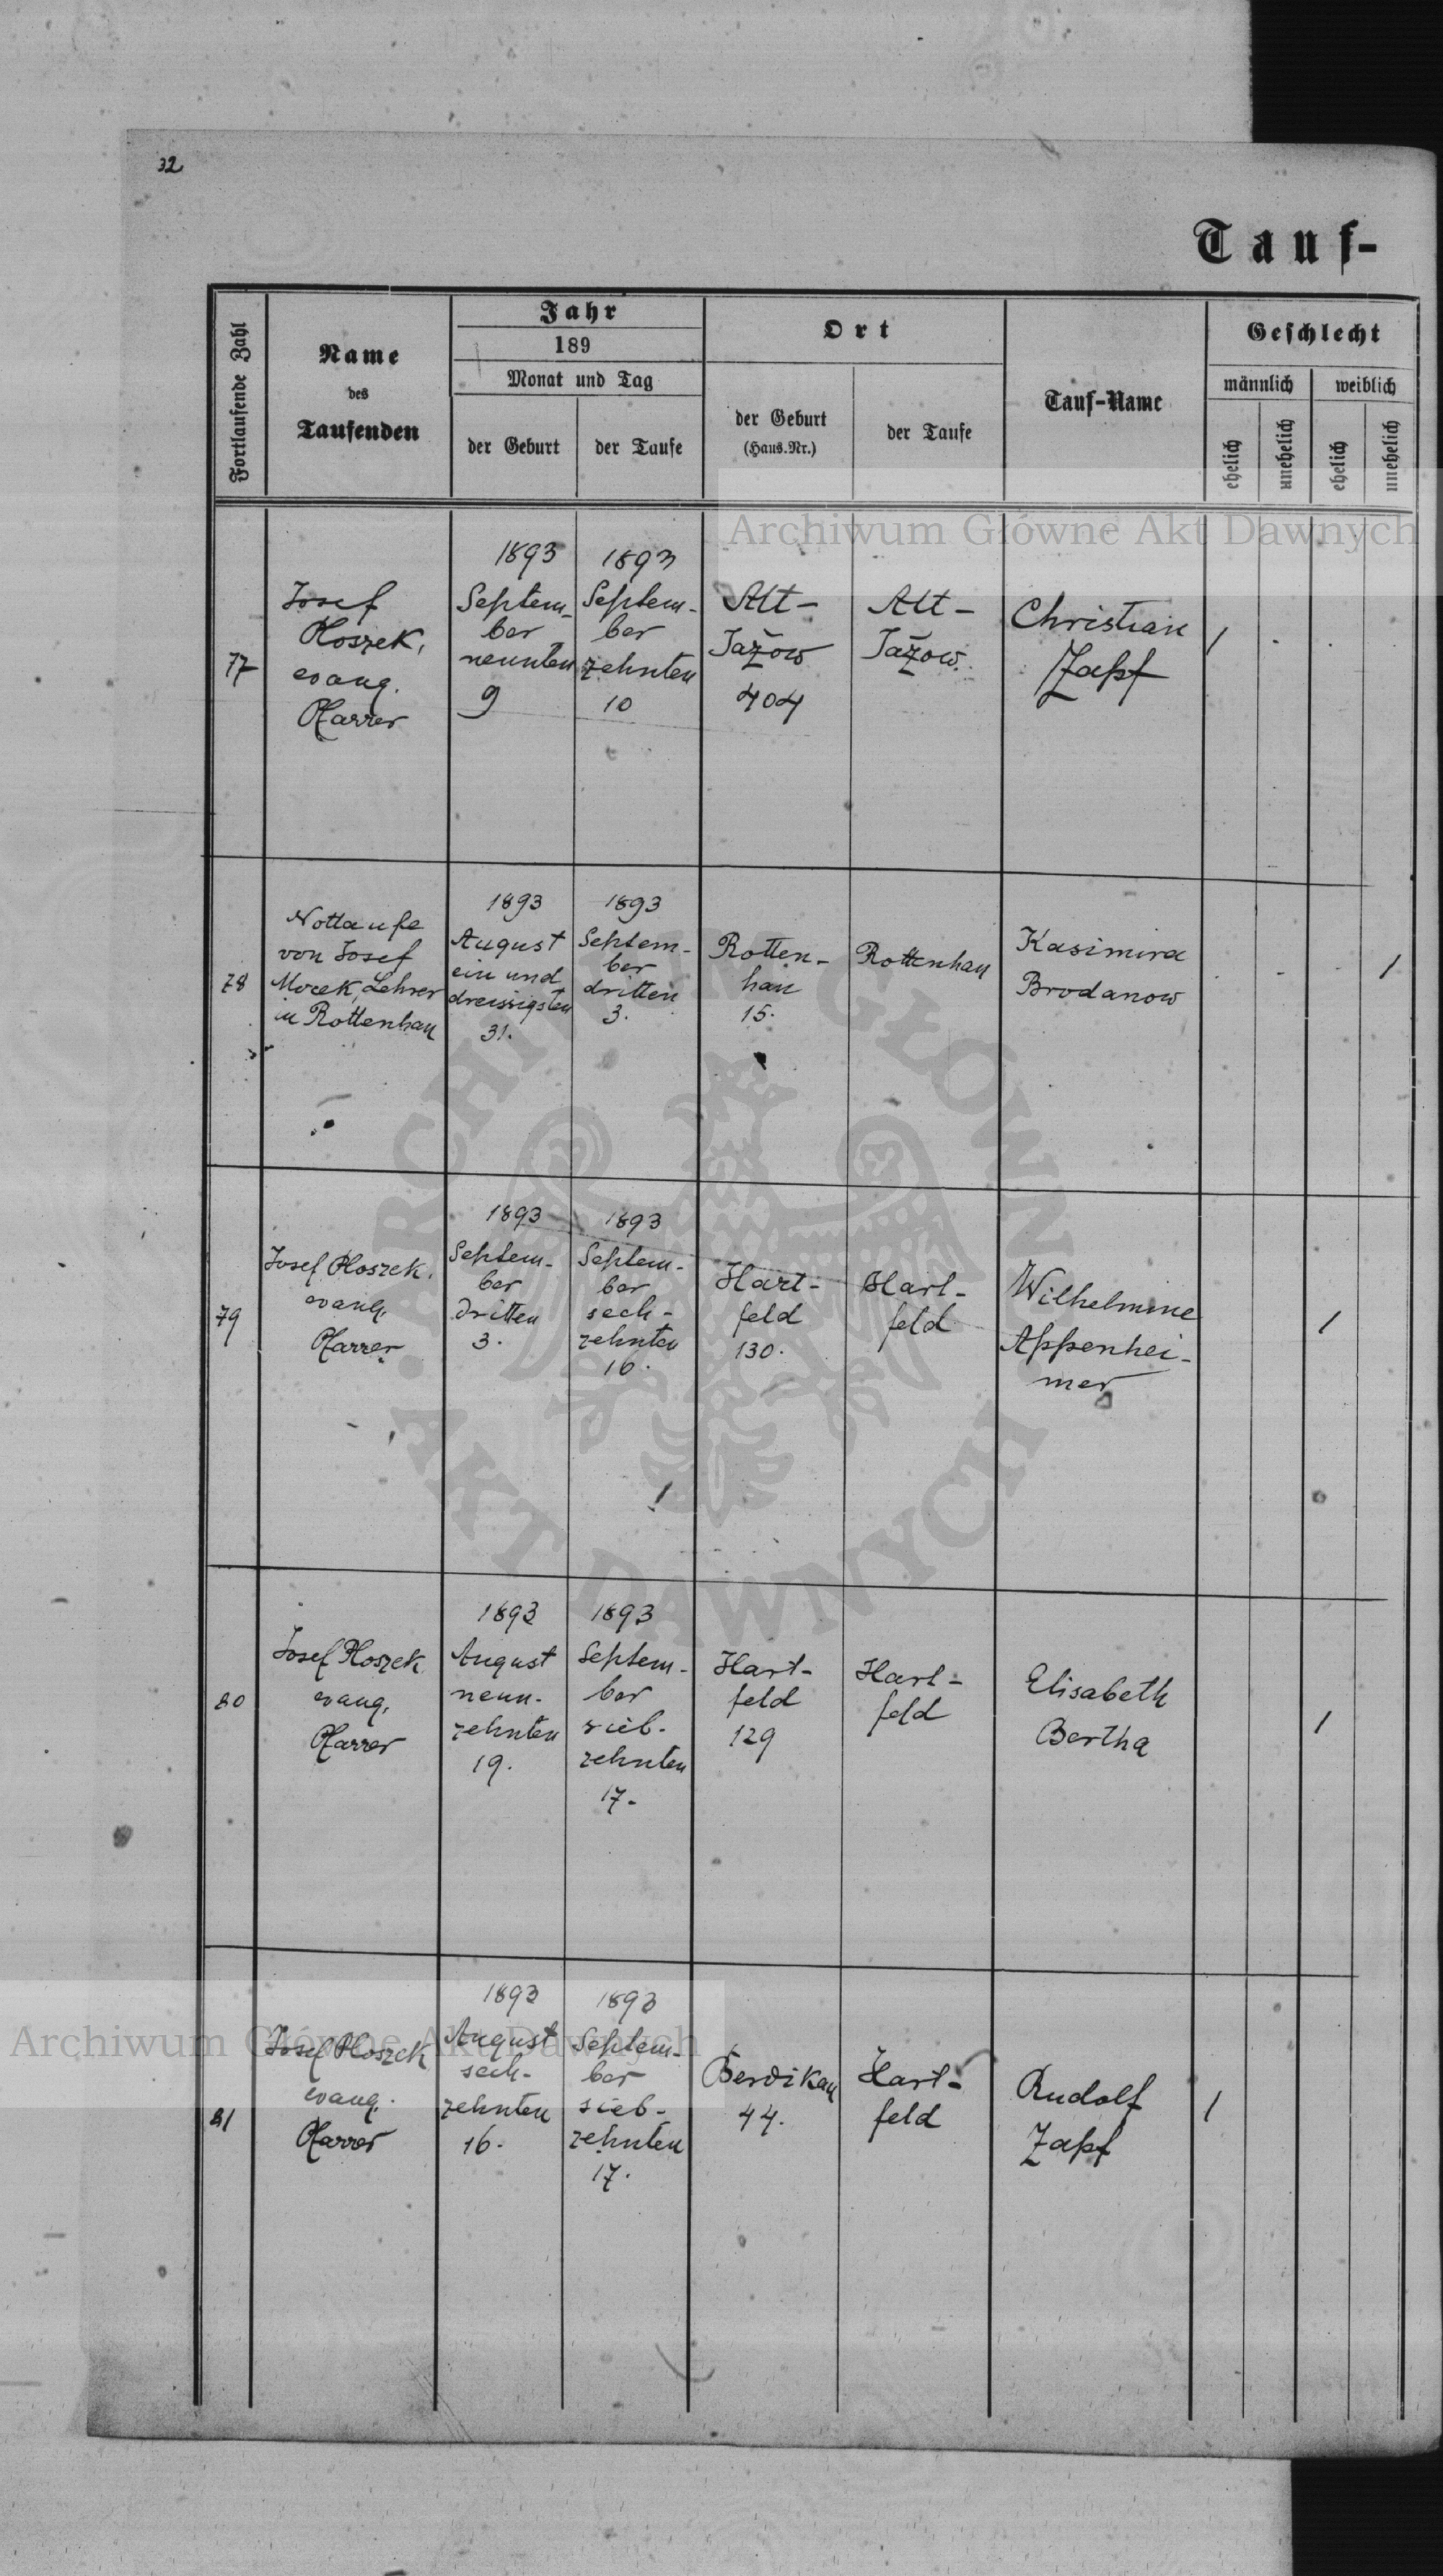 32
Tauf-
Fortlaufende Zahl
Name
des
Taufenden
Jahr
189
Monat und Tag
der Geburt
der Taufe
Ort
der Geburt
(Haus.Nr.)
der Taufe
Tauf-Name
Geschlecht
männlich
weiblich
ehelich
unehelich
ehelich
unehelich
Archiwum Główne Akt Dawnych
77
Josef
Ploszek,
evang.
Pfarrer
1893
Septem-
ber
neunten
9
1893
Septem-
ber
zehnten
10
Alt-
Jažow
404
Alt-
Jažow.
Christian
Zapf
1
78
Nottaufe
von Josef
Morek, Lehrer
in Rottenhan
1893
August
ein und
dreissigsten
31.
1893
Septem-
ber
dritten
3.
Rotten-
han
15.
Rottenhan
Kasimira
Brodanow
1
79
Josef Ploszek,
evang.
Pfarrer
1893
Septem-
ber
dritten
3.
1893
Septem-
ber
sech-
zehnten
16.
Hart-
feld
130.
Hart-
feld
Wilhelmine
Appenhei-
mer
1
80
Josef Ploszek
evang.
Pfarrer
1893
August
neun-
zehnten
19.
1893
Septem-
ber
sieb-
zehnten
17.
Hart-
feld
129
Hart-
feld
Elisabeth
Bertha
1
81
Josef Ploszek
evang.
Pfarrer
1893
August
sech-
zehnten
16.
1893
Septem-
ber
sieb-
zehnten
17.
Berdikau
44.
Hart-
feld
Rudolf
Zapf
1
Archiwum Główne Akt Dawnych
ARCHIWUM GŁÓWNE
AKT DAWNYCH